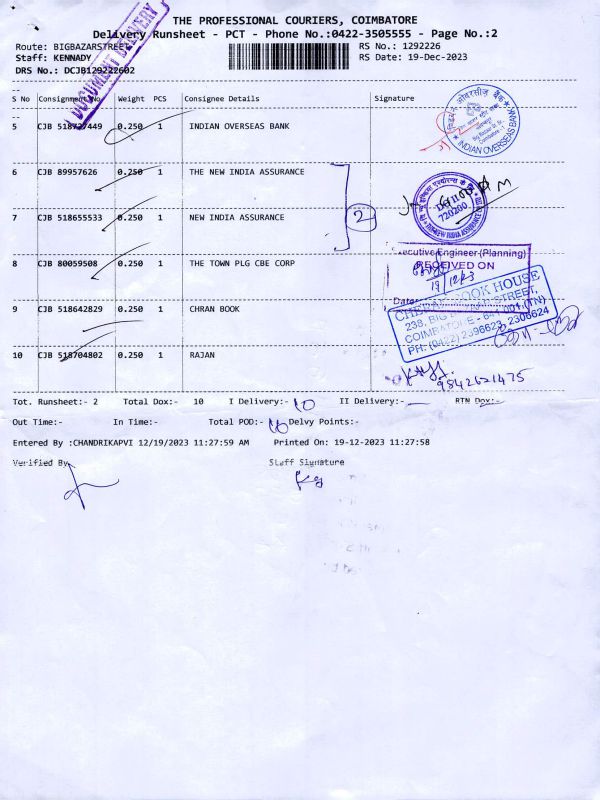 THE PROFESSIONAL COURIERS, COIMBATORE
Delivery Runsheet - PCT - Phone No.:0422-3505555 - Page No.:2
Route: BIGBAZARSTREET
RS No.: 1292226
Staff: KENNADY
RS Date: 19-Dec-2023
DRS No.: DCJB129222602
DOCUMENT DELIVERY
S No Consignment No Weight PCS Consignee Details Signature
5 CJB 518727449 0.250 1 INDIAN OVERSEAS BANK
INDIAN OVERSEAS BANK
6 CJB 89957626 0.250 1 THE NEW INDIA ASSURANCE
7 CJB 518655533 0.250 1 NEW INDIA ASSURANCE
2
720200
8 CJB 80059508 0.250 1 THE TOWN PLG CBE CORP
Executive Engineer (Planning)
RECEIVED ON
19/12/23
Date
9 CJB 518642829 0.250 1 CHRAN BOOK
BOOK HOUSE
STREET,
COIMBATORE - 641 001.(TN)
PH: (0422) 2396623, 2306624
10 CJB 518704802 0.250 1 RAJAN
9842621475
Tot. Runsheet:- 2 Total Dox:- 10 I Delivery:- 10 II Delivery:- RTN Dox:-
Out Time:- In Time:- Total POD:- 10 Delvy Points:-
Entered By :CHANDRIKAPVI 12/19/2023 11:27:59 AM Printed On: 19-12-2023 11:27:58
Verified By Staff Signature